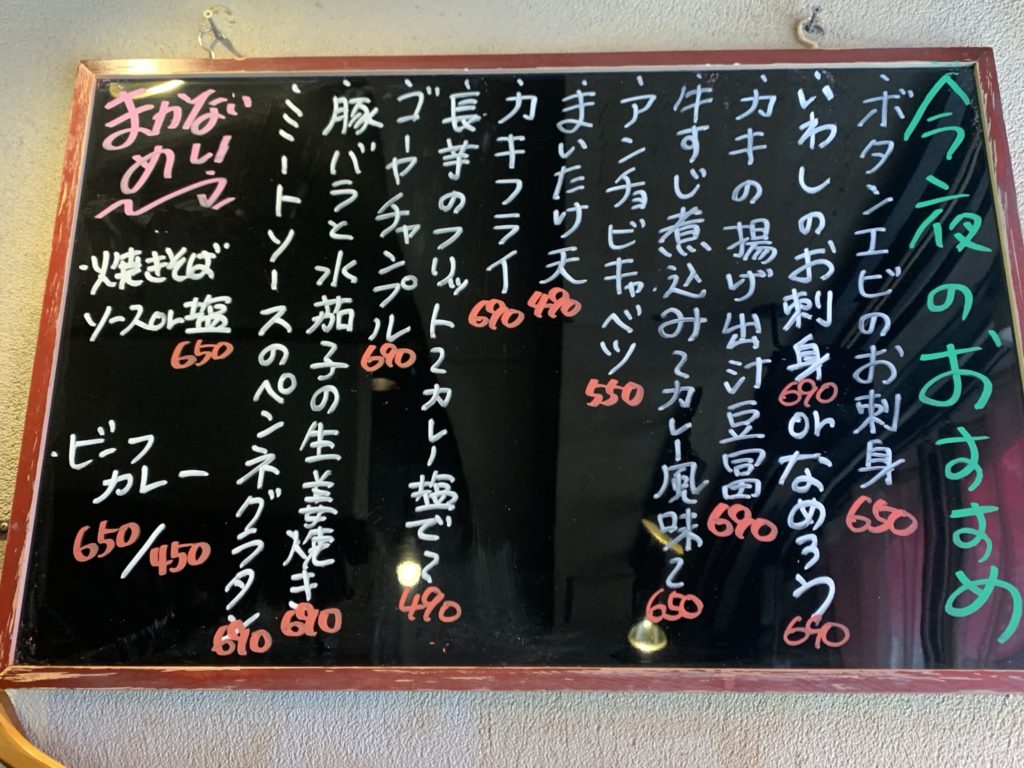 今夜のおすすめ
・ボタンエビのお刺身 650
・いわしのお刺身690 orなめろう 690
・カキの揚げ出汁豆冨 690
・牛すじ煮込み〜カレー風味〜 650
・アンチョビキャベツ 550
・まいたけ天 490
・カキフライ 690
・長芋のフリット〜カレー塩で〜 490
・ゴーヤチャンプル 690
・豚バラと水茄子の生姜焼き 690
・ミートソースのペンネグラタン 690
まかない
めし!
・焼きそば
ソースor塩
650
・ビーフ
カレー
650/450